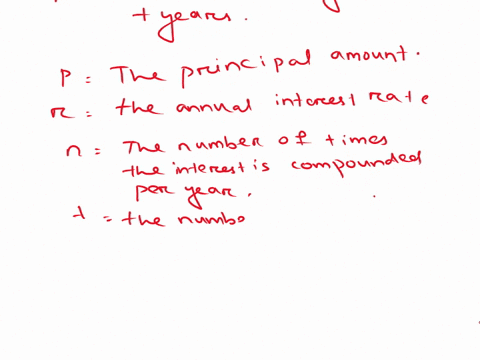 t years.
P = The principal amount.
r = the annual interest rate
n = The number of times
the interest is compounded
per year.
t = the numbe